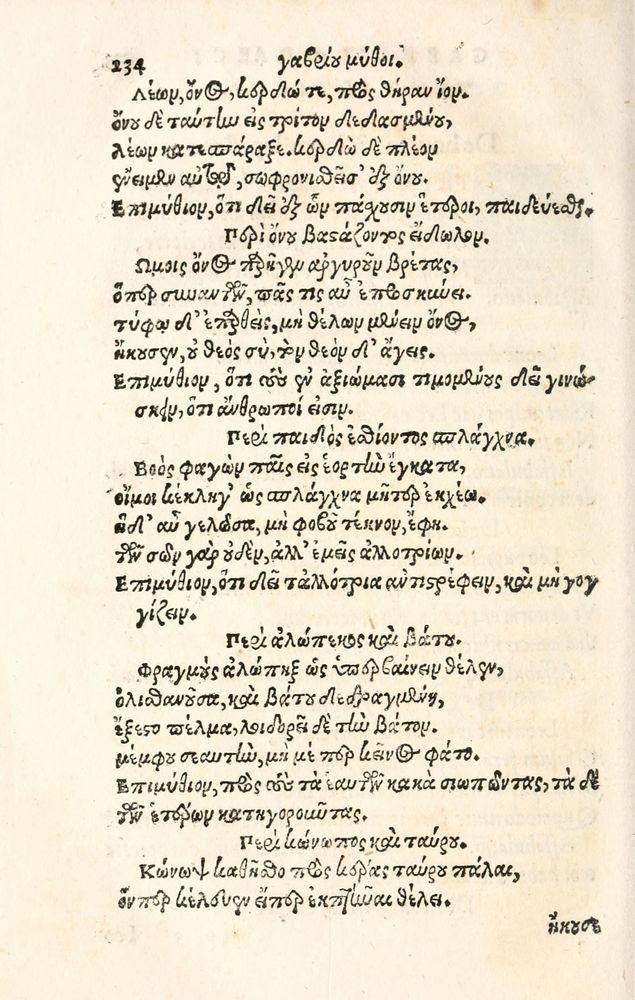 234 γαβρίου μύθοι.
Λέων, ὄνος, κερδώ τε, πρὸς θήραν ἴον.
ὄνου δὲ ταύτην εἰς τρίτον δεδασμένου,
λέων κατεσπάραξε. κερδὼ δὲ πλέον
νέειμεν αὐτῷ, σωφρονισθεῖσ' ἐξ ὄνου.
Επιμύθιον, ὅτι δεῖ ἐξ ὧν πάχουσιν ἕτεροι, παιδεύεσθαι.
Περὶ ὄνου βαστάζοντος εἴδωλον.
Ωμοις ὄνος προῆγεν ἀργυροῦν βρέτας,
ὅπερ συναντῶν, πᾶς τις αὖ ἐπροσκύνει.
τύφῳ δ' ἐπαρθεὶς, μὴ θέλων μένειν ὄνος,
ἤκουσεν, οὐ θεὸς σὺ, τὸν θεὸν δ' ἄγεις.
Επιμύθιον, ὅτι τοὺς ἐν ἀξιώμασι τιμομένους δεῖ γινώ-
σκειν, ὅτι ἄνθρωποί εἰσιν.
Περὶ παιδὸς ἐσθίοντος σπλάγχνα.
Βοὸς φαγὼν παῖς εἰς ἑορτὴν ἔγκατα,
οἴμοι κέκληγ' ὡς σπλάγχνα μῆτερ ἐκχέω.
ἡ δ' αὖ γελῶσα, μὴ φοβοῦ τέκνον, ἔφη.
τῶν σῶν γὰρ οὐδὲν, ἀλλ' ἐμεῖς ἀλλοτρίων.
Επιμύθιον, ὅτι δεῖ τἀλλότρια ἀντιστρέφειν, καὶ μὴ γογ
γίζειν.
Περὶ ἀλώπεκος καὶ βάτου.
Φραγμοὺς ἀλώπηξ ὡς ὑπερβαίνειν θέλεν,
ὀλισθανοῦσα, καὶ βάτου δεδραγμένη,
ἔξεστο πέλμα, λοιδορεῖ δὲ τὴν βάτον.
μέμφου σεαυτὴν, μὴ μέ περ κεῖνος φάτο.
Επιμύθιον, πρὸς τοὺς τὰ ἑαυτῶν κακὰ σιωπῶντας, τὰ δὲ
τῶν ἑτέρων κατηγοροῦντας.
Περὶ κώνωπος καὶ ταύρου.
Κώνωψ καθῆστο πρὸς κέρας ταύρου πάλαι,
ὅνπερ κέλευεν εἴπερ ἐκπτῆναι θέλει.
ἤκουσε